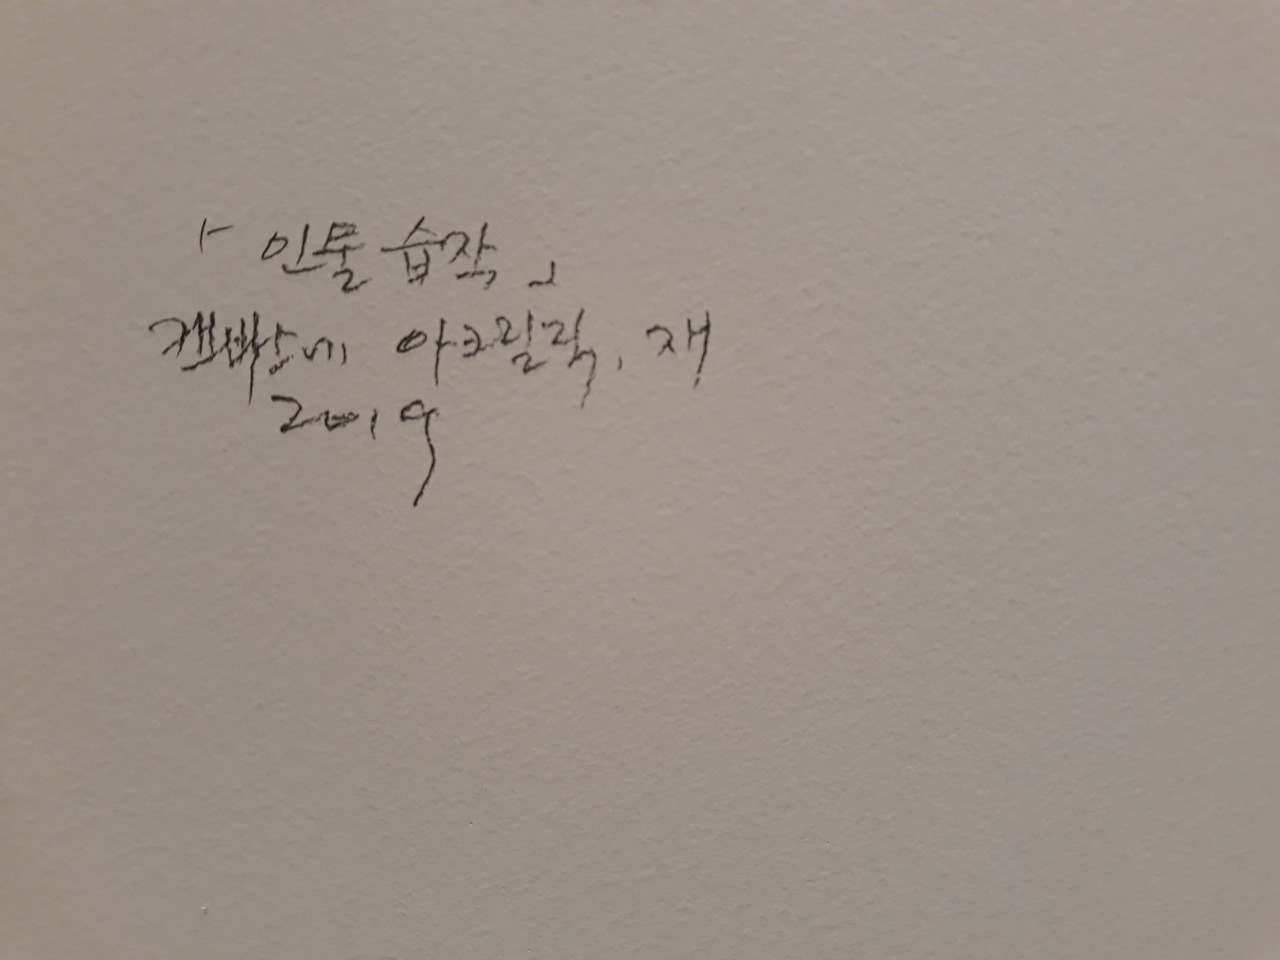 「인물 습작」
캔바스에 아크릴릭, 재
2019